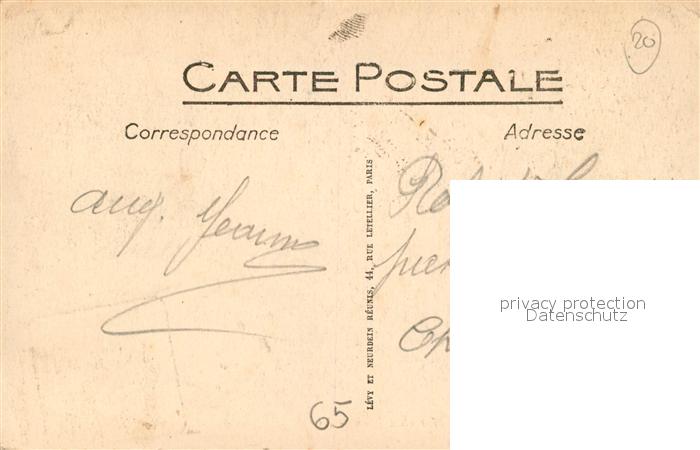 20
CARTE POSTALE
Correspondance
Adresse
Aug.
LÉVY ET NEURDEIN RÉUNIS, 44, RUE LETELLIER, PARIS
65
privacy protection
Datenschutz